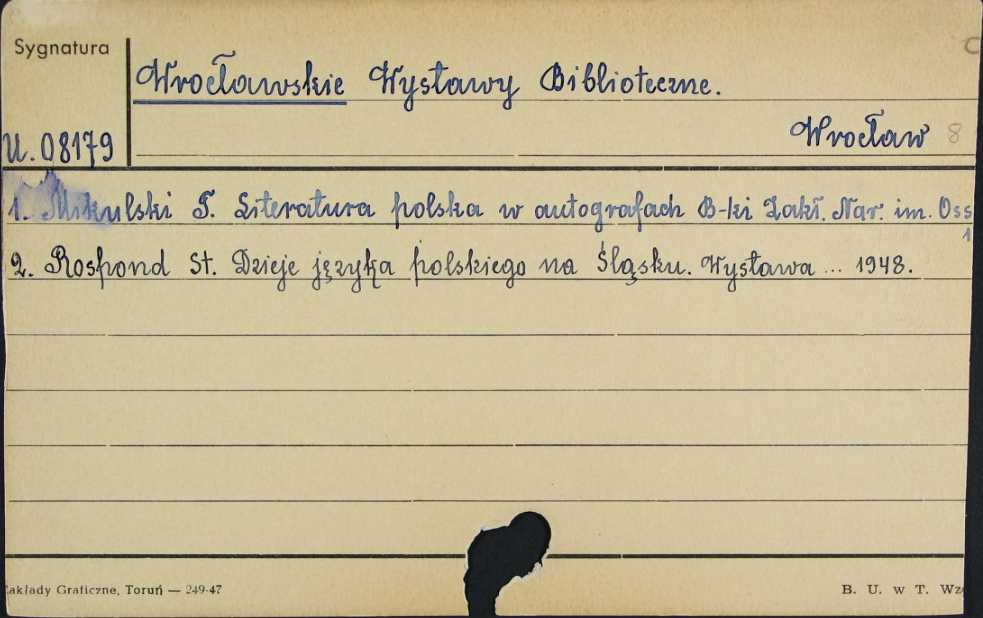 Sygnatura
Wrocławskie Wystawy Biblioteczne.
Wrocław 8
U. 08179
1. Mikulski T. Literatura polska w autografach B-ki Zakł. Nar. im. Oss
1
2. Rospond St. Dzieje języka polskiego na Śląsku. Wystawa ... 1948.
Zakłady Graficzne, Toruń — 249-47
B. U. w T. Wz